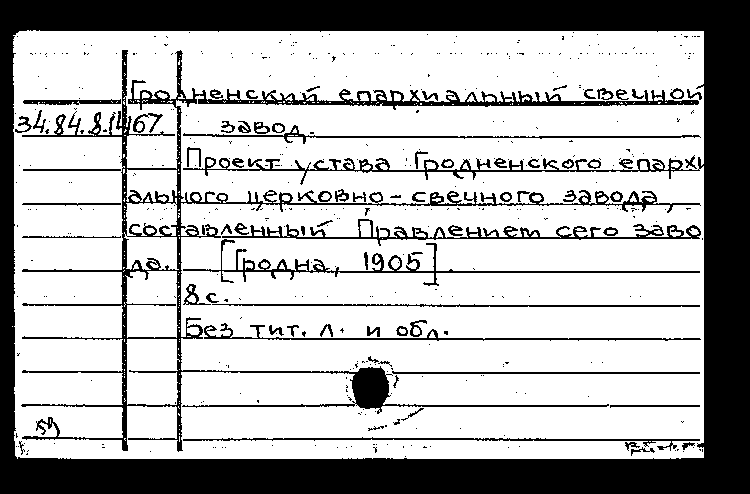 Гродненский епархиальный свечной
34.84.8.1467. завод.
Проект устава Гродненского епархи
ального церковно-свечного завода,
составленный Правлением сего заво
да. [Гродна, 1905].
8 с.
Без тит. л. и обл.